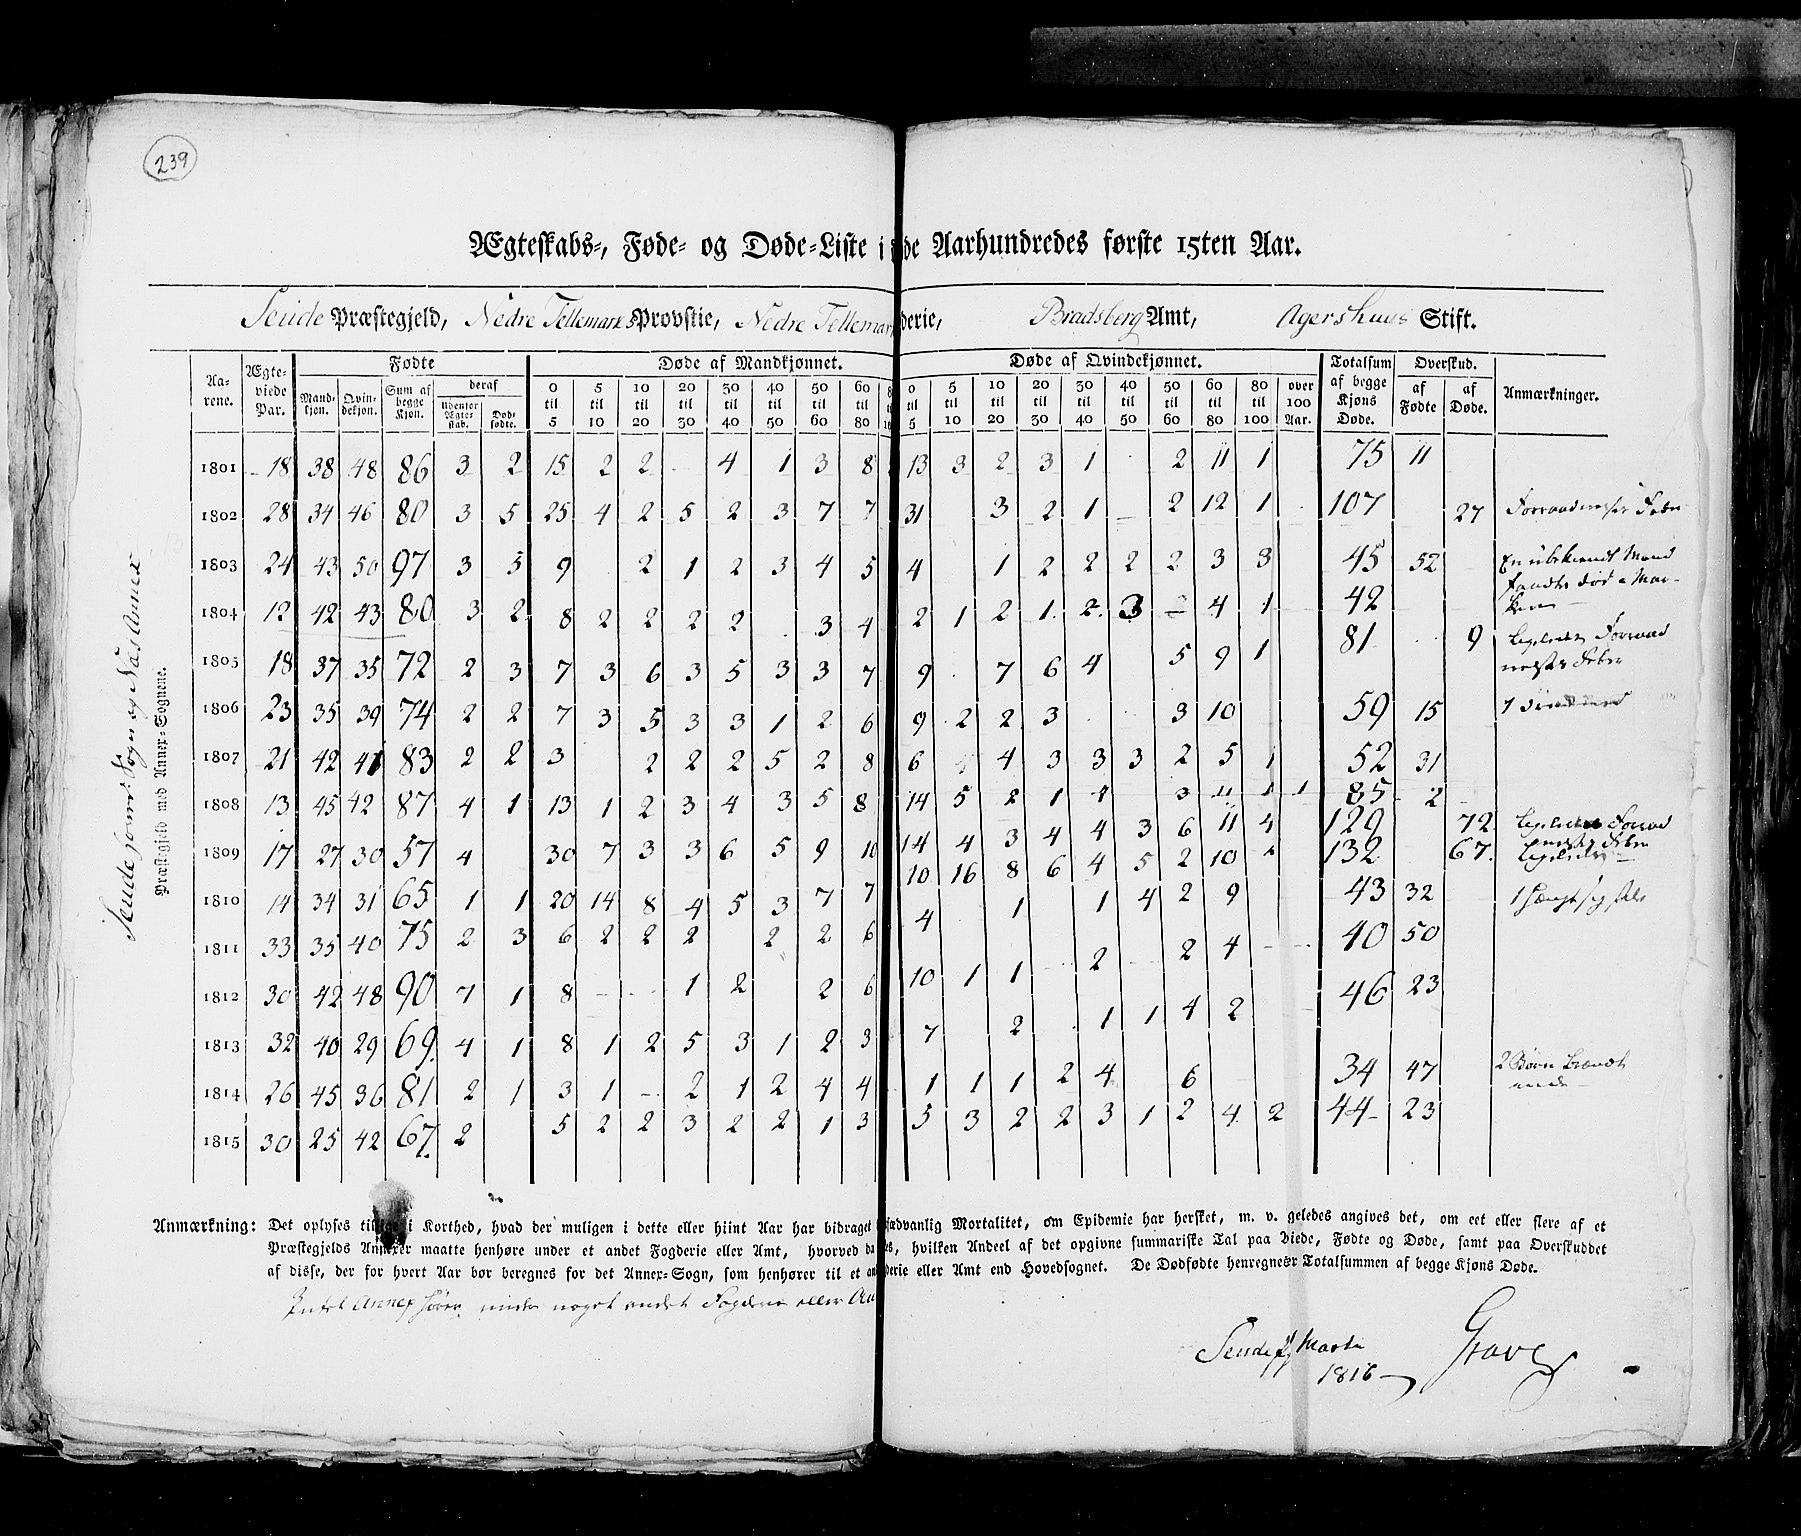 239
Ægteskabs-, Føde- og Døde-Liste i de Aarhundredes første 15ten Aar.
Seude Præstegjeld, Nedre Tellemarks Provstie, Nedre Tellemar derie, Bradsberg Amt, Agershuus Stift.
Aa-rene. Ægte-viede Par. Fødte Døde af Mandkjønnet. Døde af Qvindekjønnet. Totalsum af begge Kjøns Døde. Overskud. Anmærkninger.
Mand-kjøn. Qvin-dekjøn. Sum af begge Kjøn. deraf Udenfor Ægteskab. Død-fødte. 0 til 5 5 til 10 10 til 20 20 til 30 30 til 40 40 til 50 50 til 60 60 til 80 0 til 5 5 til 10 10 til 20 20 til 30 30 til 40 40 til 50 50 til 60 60 til 80 80 til 100 over 100 Aar. af Fødte af Døde.
1801 18 38 48 86 3 2 15 2 2 4 1 3 8 13 3 2 3 1 2 11 1 75 11
1802 28 34 46 80 3 5 25 4 2 5 2 3 7 7 31 3 2 1 – 2 12 1 107 27 Forraadnelses Feber
1803 24 43 50 97 3 5 9 2 1 2 3 4 5 4 1 2 2 2 2 3 3 45 52 En ubekiendt Mand
1804 12 42 43 80 3 2 8 2 2 2 2 3 4 2 1 2 1 2 3 – 4 1 42
1805 18 37 35 72 2 3 7 3 6 3 5 3 3 7 9 7 6 4 5 9 1 81 9 Forraad
nelses Feber
1806 23 35 39 74 2 2 7 3 5 3 3 1 2 6 9 2 2 3 3 10 59 15
1807 21 42 41 83 2 2 3 2 2 2 5 2 8 6 4 3 3 3 2 5 1 52 31
1808 13 45 42 87 4 1 13 1 2 3 4 3 5 8 14 5 2 1 1 3 11 1 1 85 2
1809 17 27 30 57 4 30 7 3 3 6 5 9 10 14 4 3 4 4 3 6 11 4 129 72
1810 14 34 31 65 1 1 20 14 8 4 5 3 7 7 10 16 8 6 4 5 2 10 132 67
1811 33 35 40 75 2 3 6 2 2 2 2 2 6 4 1 1 4 2 9 43 32
1812 30 42 48 90 7 1 8 – – 1 2 2 6 10 1 1 2 2 4 40 50
1813 32 40 29 69 4 1 8 1 2 5 3 1 2 3 7 2 1 1 4 2 46 23
1814 26 45 36 81 2 1 3 1 – 2 1 2 4 4 1 1 1 2 4 6 34 47 2 Børn
1815 30 25 42 67 2 5 2 2 3 2 2 1 3 5 3 2 2 3 1 2 4 2 44 23
Seudehoved Sogn og Næs Annex
Præstegjeld med Annex-Sognene.
Anmærkning: Det oplyses tillige i Korthed, hvad der muligen i dette eller hiint Aar har bidraget sædvanlig Mortalitet, om Epidemie har hersket, m. v. geledes angives det, om eet eller flere af et
Præstegjelds Annexer maatte henhøre under et andet Fogderie eller Amt, hvorved es, hvilken Andeel af det opgivne summariske Tal paa Viede, Fødte og Døde, samt paa Overskuddet
af disse, der for hvert Aar bør beregnes for det Annex-Sogn, som henhører til et an derie eller Amt end Hovedsognet. De Dødfødte henregnes Totalsummen af begge Kjøns Døde.
Intet Annex hører under noget andet Fogderie eller Am
Seude Marti
1816 Grave